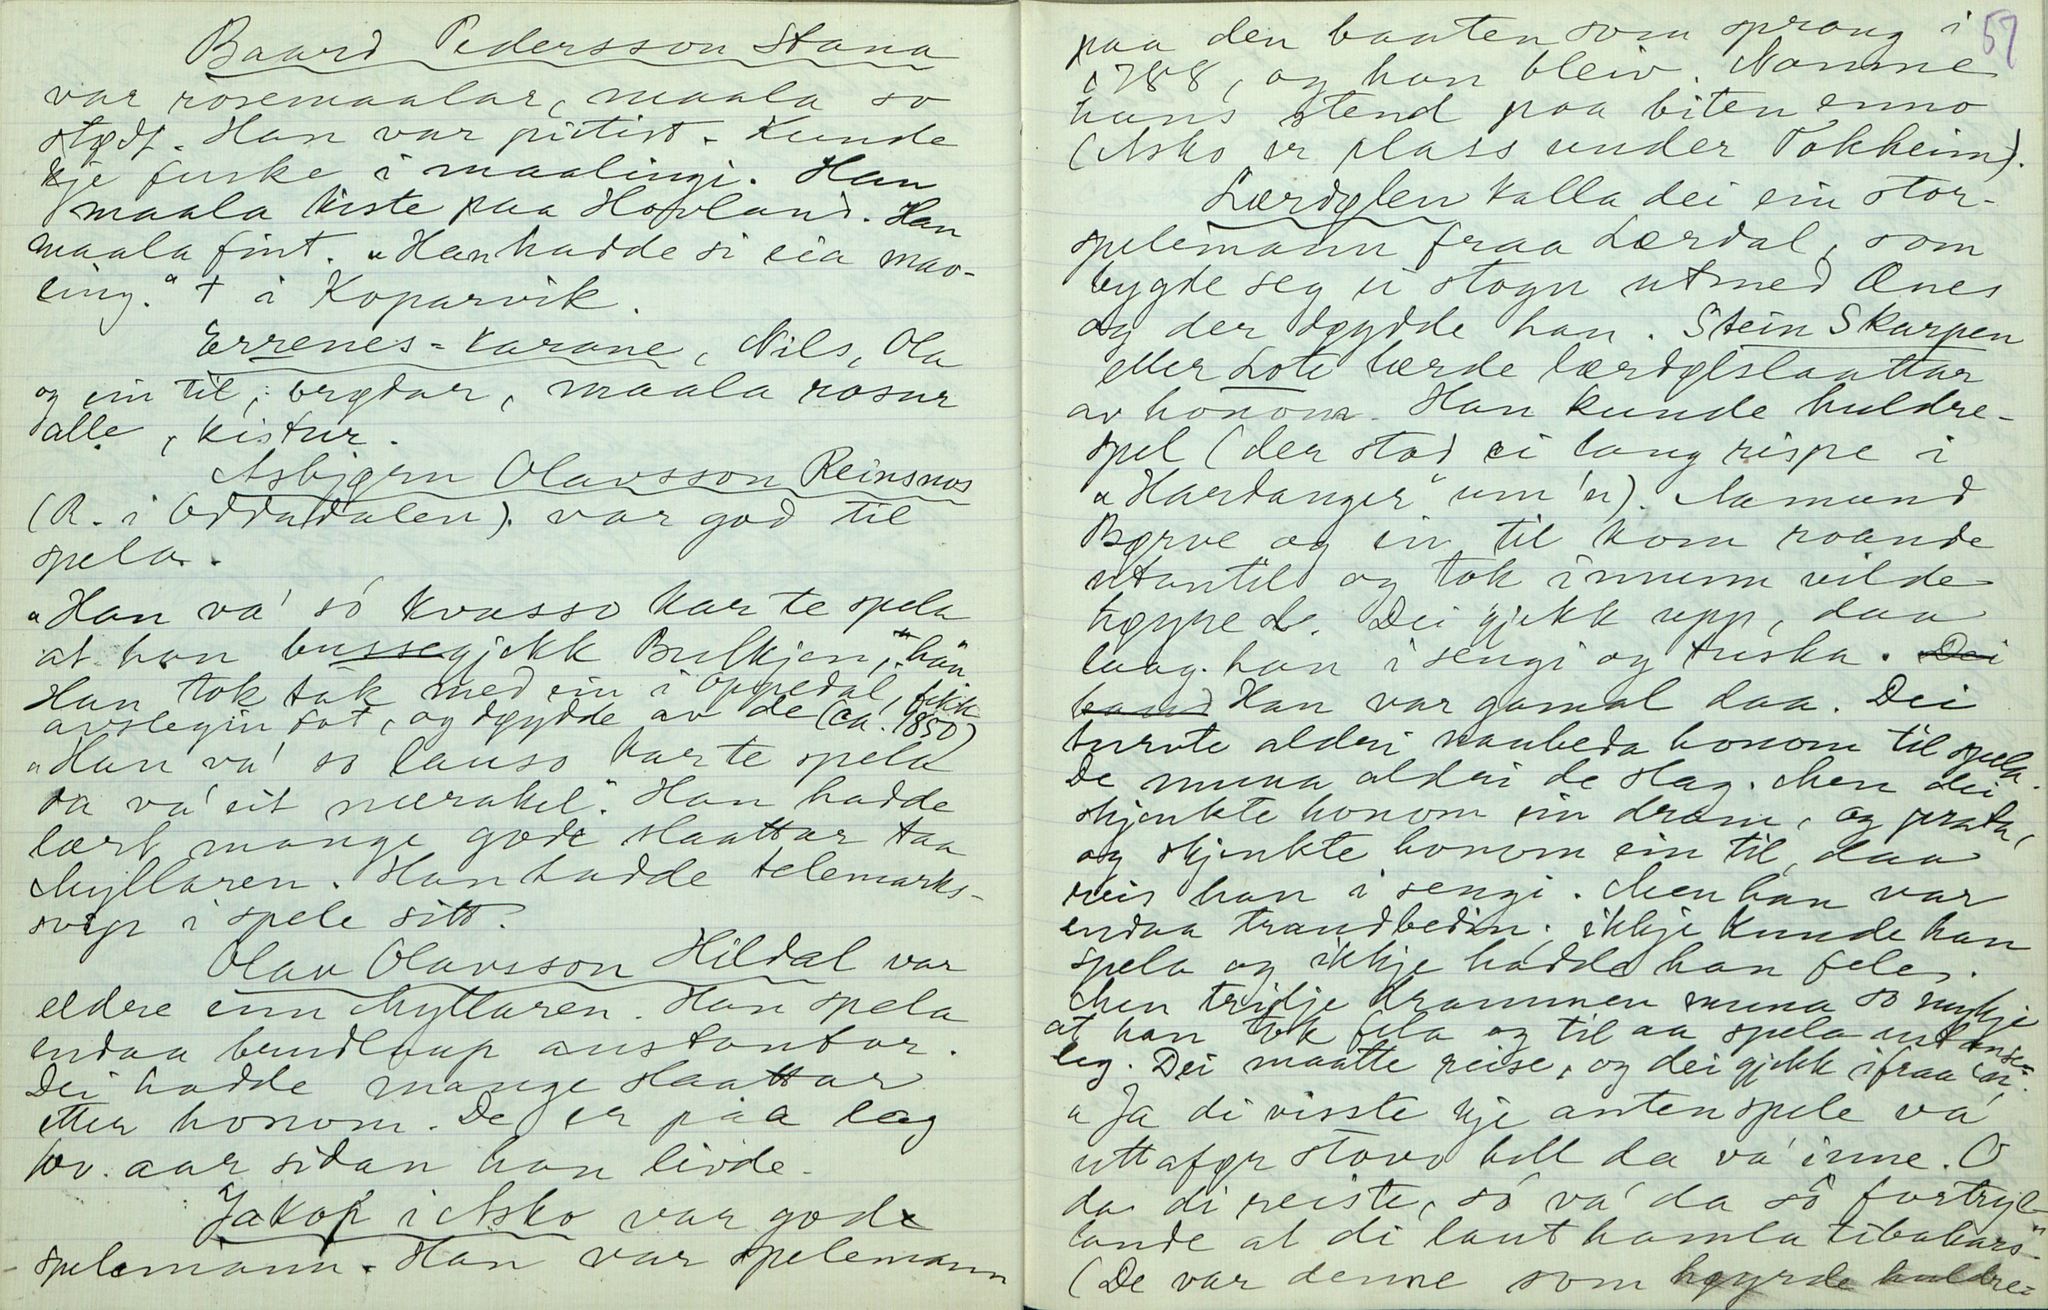 Baard Pedersson Stana
var rosemaalar, maala so
stødt. Han var pietist. Kunde
kje fuske i maalingi. Han
maala kiste paa Hovland. Han
maala fint. "Han hadde si eia mao-
ling." † i Koparvik.
Errenes-karane, Nils, Ola
og ein til, brødar, maala rosur
alle, kistur.
Asbjørn Olavsson Reinsnos
(R. i Oddadalen). var god til
spela.
"Han va' só kvasse kar te spela
at han bussegjekk Bulkjen," "han
Han tok tak med ein i Oppedal, fekk
avslegjin fot, og døydde av de (ca. 1850)
"Han va' so lauso kar te spela
da va' eit mirakel". Han hadde
lært mange gode slaattar taa
Myllaren. Han hadde telemarks-
svip i spele sitt.
Olav Olavsson Hildal var
eldre enn Myllaren. Han spela
endaa brudlaup austantor.
Dei hadde mange slaattar
etter honom. De er paa lag
100 aar sidan han livde.
Jakop i Asko var gode
spelemann. Han var spelemann
57
paa den baaten som sprang i
1788, og han bleiv. Namne
hans stend paa biten enno
(Asko er plass under Tokheim).
Lærdølen kalla dei ein stor-
spelemann fraa Lærdal, som
bygde seg ei stogu utmed Ænes
og der døydde han. Stein Skarpen
eller Lote lærde lærdølslaattar
av honom. Han kunde huldre-
spel (der stod ei lang rispe i
"Hardanger" um 'n). Aamund
Børve og ein til kom roande
utantil og tok i munn vilde
høyre L. Dei gjekk upp, daa
laag han i sengi og tuska. Dei
baud Han var gamal daa. Dei
turvte aldri naubeda honom til spela.
De muna aldri de slag. Men dei
skjenkte honom ein dram, og prata,
og skjenkte honom ein til, daa
reis han i sengi. Men han var
endaa traudbedin. ikkje kunde han
spela og ikkje hadde han fele.
Men tridje drammen muna so mykje
at han tok fela og til aa spela
leg. Dei maatte reise, og dei gjekk ifraa 'n.
"Ja di visste kje anten spele va'
utt afør stovo hell da va' inne. O
da di reiste, só va' da só fortryl-
lande at di laut hamla tibakars"
(De var denne som høyrde huldre-